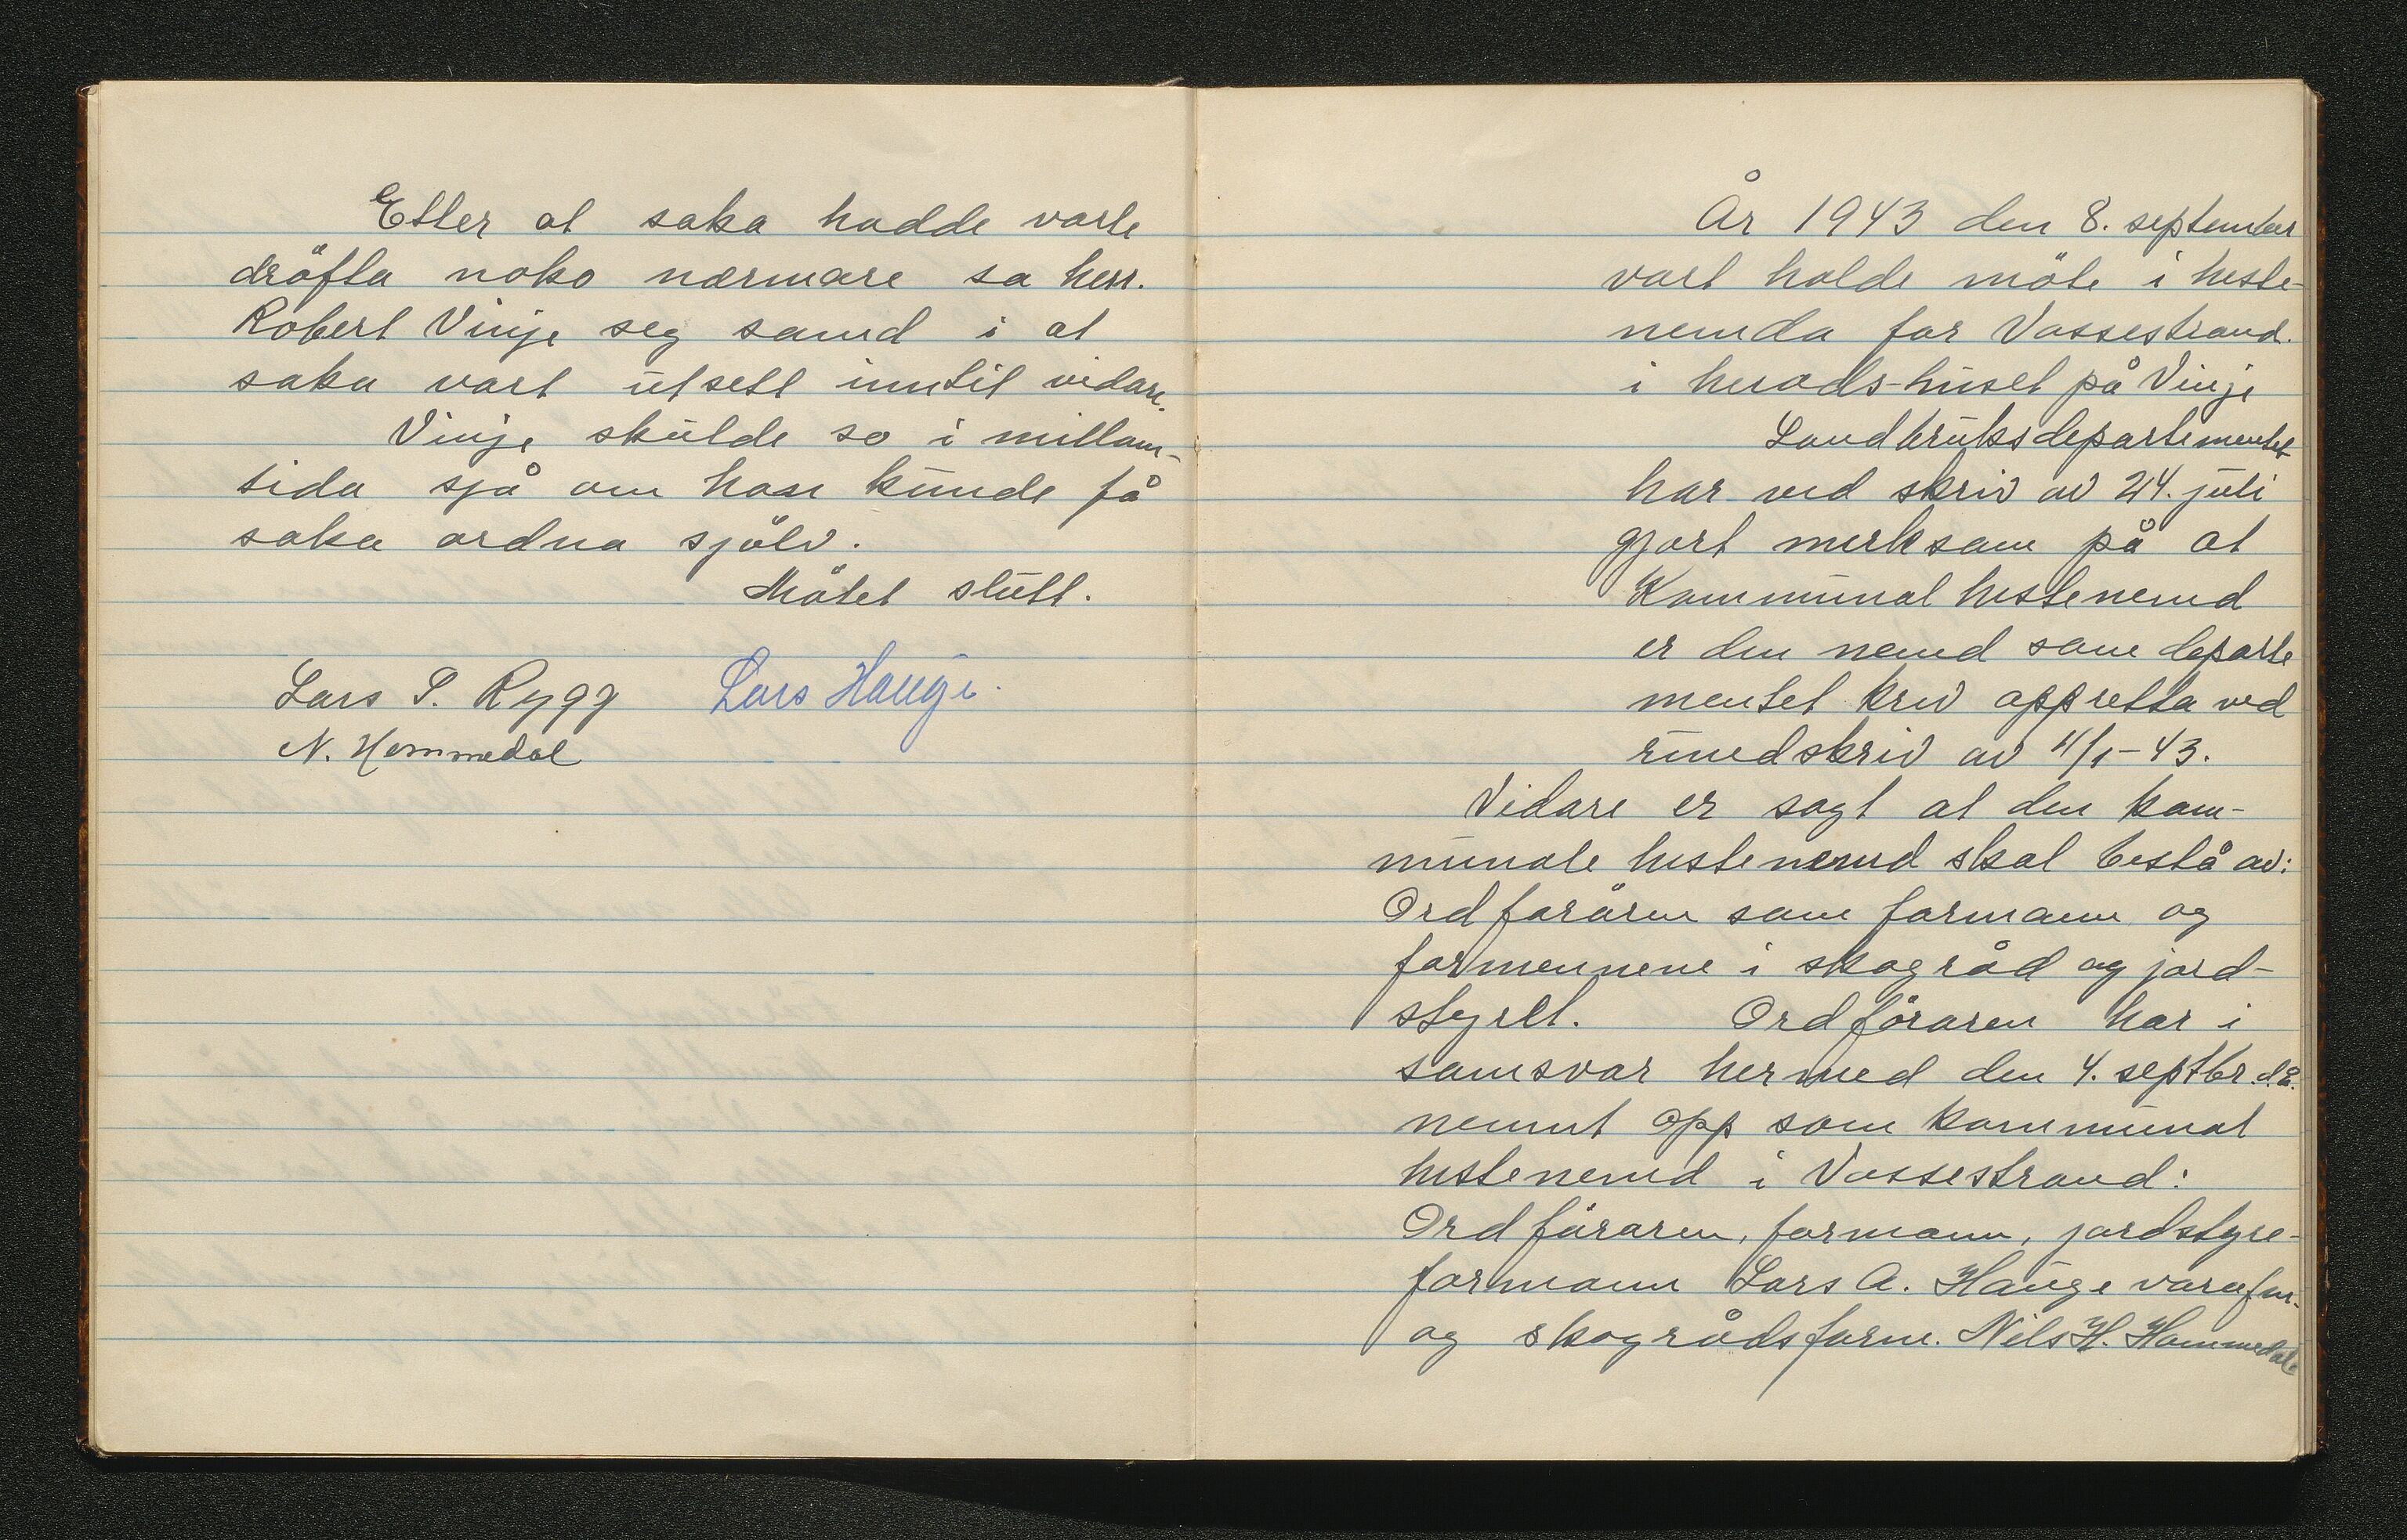 Etter at saka hadde vorte
dröfta noko nærmare sa herr.
Robert Vinje seg samd i at
saka vart utsett inntil vidare.
Vinje skulde so i millom-
tida sjå om han kunde få
saka ordna sjölv.
Mötet slutt.
Lars S. Rygg Lars Hauge.
N. Hommedal
År 1943 den 8. september
vart halde möte i heste-
nemda for Vossestrand.
i herads-huset på Vinje
Landbruksdepartementet
har ved skriv av 24. juli
gjort merksam på at
Kommunal hestenemd
er den nemd som departe
mentet krev oppretta ved
rundskriv av 4/1-43.
Vidare er sagt at den kom-
munale hestenemd skal bestå av:
Ordföraren som formann og
formennene i skogråd og jord-
styret. Ordföraren har i
samsvar hermed den 4. septbr. d.å.
nemnt opp som kommunal
hestenemd i Vossestrand:
Ordföraren, formann, jordstyre-
formann Lars A. Hauge varafm.
og skogrådsform. Nils H. Hommedal